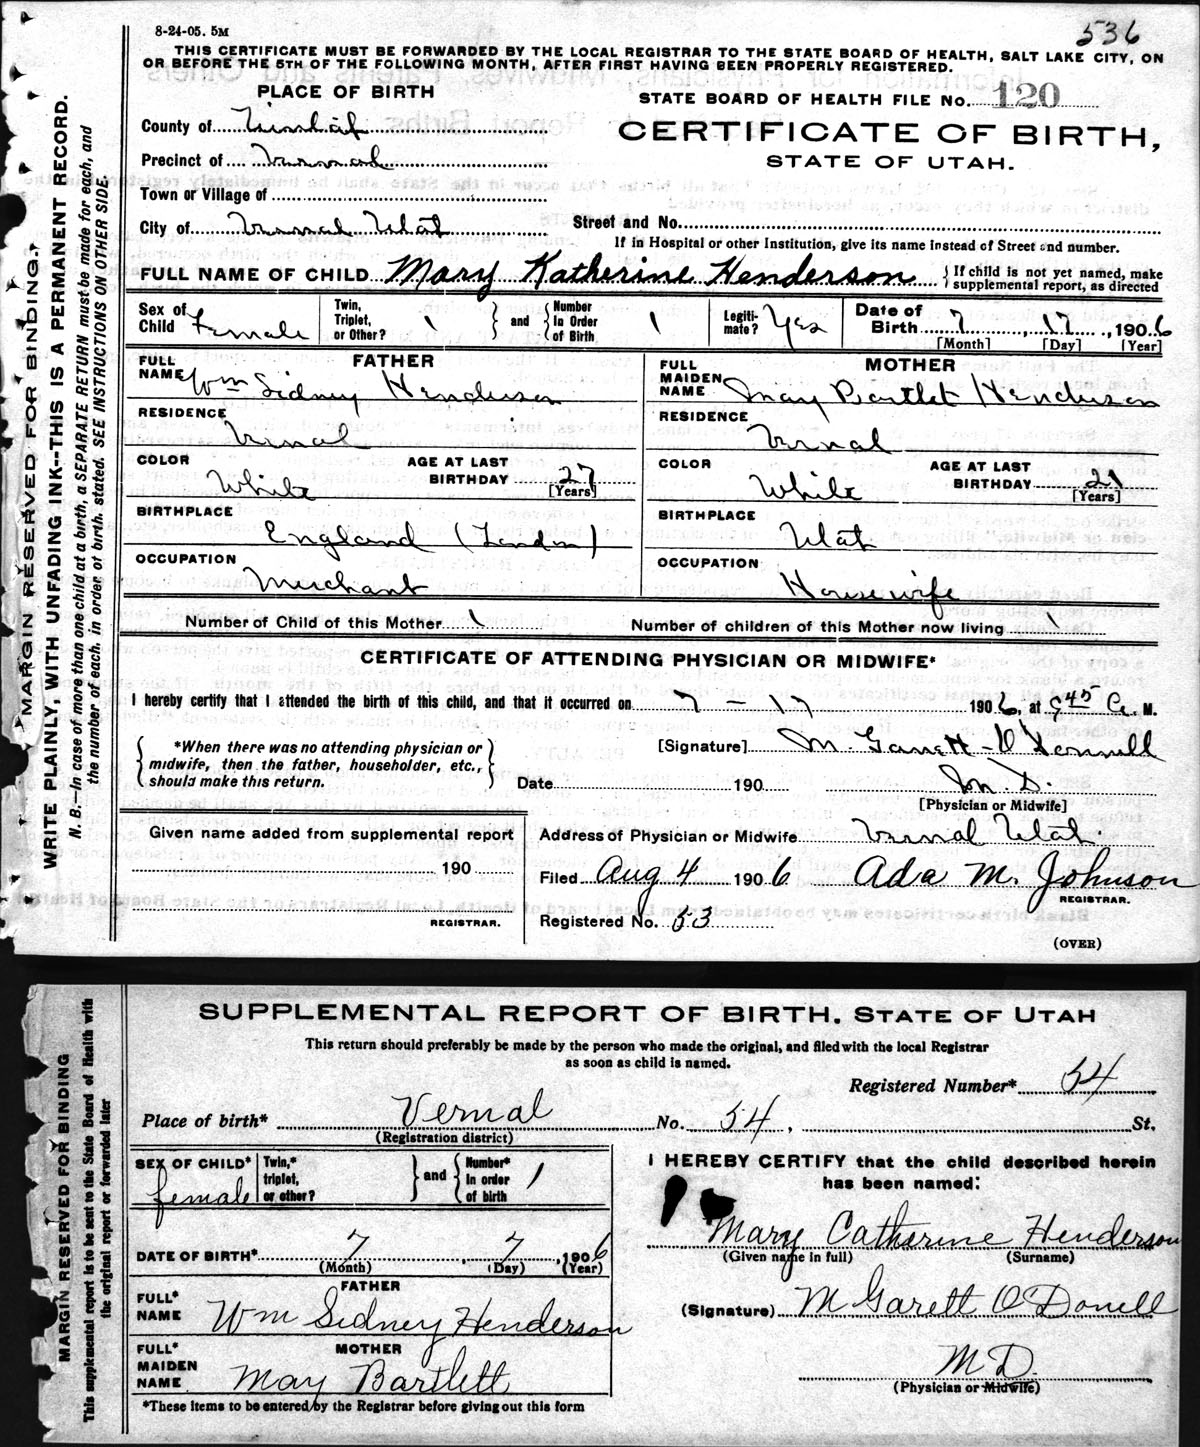 8-24-05. 5M
536
THIS CERTIFICATE MUST BE FORWARDED BY THE LOCAL REGISTRAR TO THE STATE BOARD OF HEALTH, SALT LAKE CITY, ON
OR BEFORE THE 5TH OF THE FOLLOWING MONTH, AFTER FIRST HAVING BEEN PROPERLY REGISTERED.
MARGIN RESERVED FOR BINDING.
WRITE PLAINLY, WITH UNFADING INK--THIS IS A PERMANENT RECORD.
N. B.—In case of more than one child at a birth, a SEPARATE RETURN must be made for each, and
the number of each, in order of birth, stated. SEE INSTRUCTIONS ON OTHER SIDE.
PLACE OF BIRTH
STATE BOARD OF HEALTH FILE No. 120
County of Uintah
CERTIFICATE OF BIRTH,
Precinct of Vernal
STATE OF UTAH.
Town or Village of
City of Vernal Utah
Street and No.
If in Hospital or other Institution, give its name instead of Street and number.
FULL NAME OF CHILD Mary Katherine Henderson { If child is not yet named, make
supplemental report, as directed
Sex of Child Female Twin, Triplet, or Other? 1 } and { Number In Order of Birth 1 Legiti- mate? Yes Date of Birth 7, 17, 1906
[Month] [Day] [Year]
FATHER
MOTHER
FULL NAME Wm Sidney Henderson
FULL MAIDEN NAME May Bartlet Henderson
RESIDENCE Vernal
RESIDENCE Vernal
COLOR White AGE AT LAST BIRTHDAY 27 [Years]
COLOR White AGE AT LAST BIRTHDAY 21 [Years]
BIRTHPLACE England (London)
BIRTHPLACE Utah
OCCUPATION Merchant
OCCUPATION Housewife
Number of Child of this Mother 1
Number of children of this Mother now living 1
CERTIFICATE OF ATTENDING PHYSICIAN OR MIDWIFE*
I hereby certify that I attended the birth of this child, and that it occurred on 7 - 17 1906, at 9 45 a. M.
{ *When there was no attending physician or
midwife, then the father, householder, etc.,
should make this return. }
[Signature] M. Garrett-O'Donnell
Date 190 M. D.
[Physician or Midwife]
Given name added from supplemental report
190
REGISTRAR.
Address of Physician or Midwife Vernal Utah.
Filed Aug 4 1906 Ada M. Johnson
REGISTRAR.
Registered No. 53
(OVER)
MARGIN RESERVED FOR BINDING
This supplemental report is to be sent to the State Board of Health with
the original report or forwarded later
SUPPLEMENTAL REPORT OF BIRTH. STATE OF UTAH
This return should preferably be made by the person who made the original, and filed with the local Registrar
as soon as child is named.
Registered Number* 54
Place of birth* Vernal No. 54, St.
(Registration district)
SEX OF CHILD* female Twin,* triplet, or other? } and { Number* In order of birth 1
I HEREBY CERTIFY that the child described herein
has been named:
Mary Catherine Henderson
(Given name in full) (Surname)
DATE OF BIRTH* 7, 7, 1906
(Month) (Day) (Year)
FATHER
FULL* NAME Wm Sidney Henderson
(Signature) M Garett O'Donell
MOTHER
FULL* MAIDEN NAME May Bartlett
M D.
(Physician or Midwife)
*These items to be entered by the Registrar before giving out this form